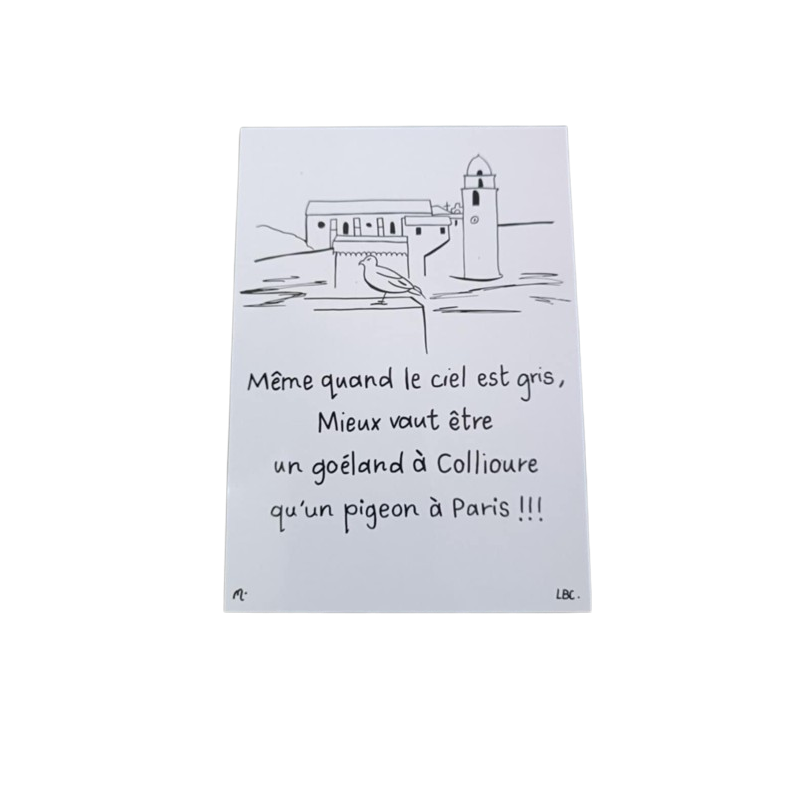 Même quand le ciel est gris,
Mieux vaut être
un goéland à Collioure
qu'un pigeon à Paris !!!
M.
LBC.